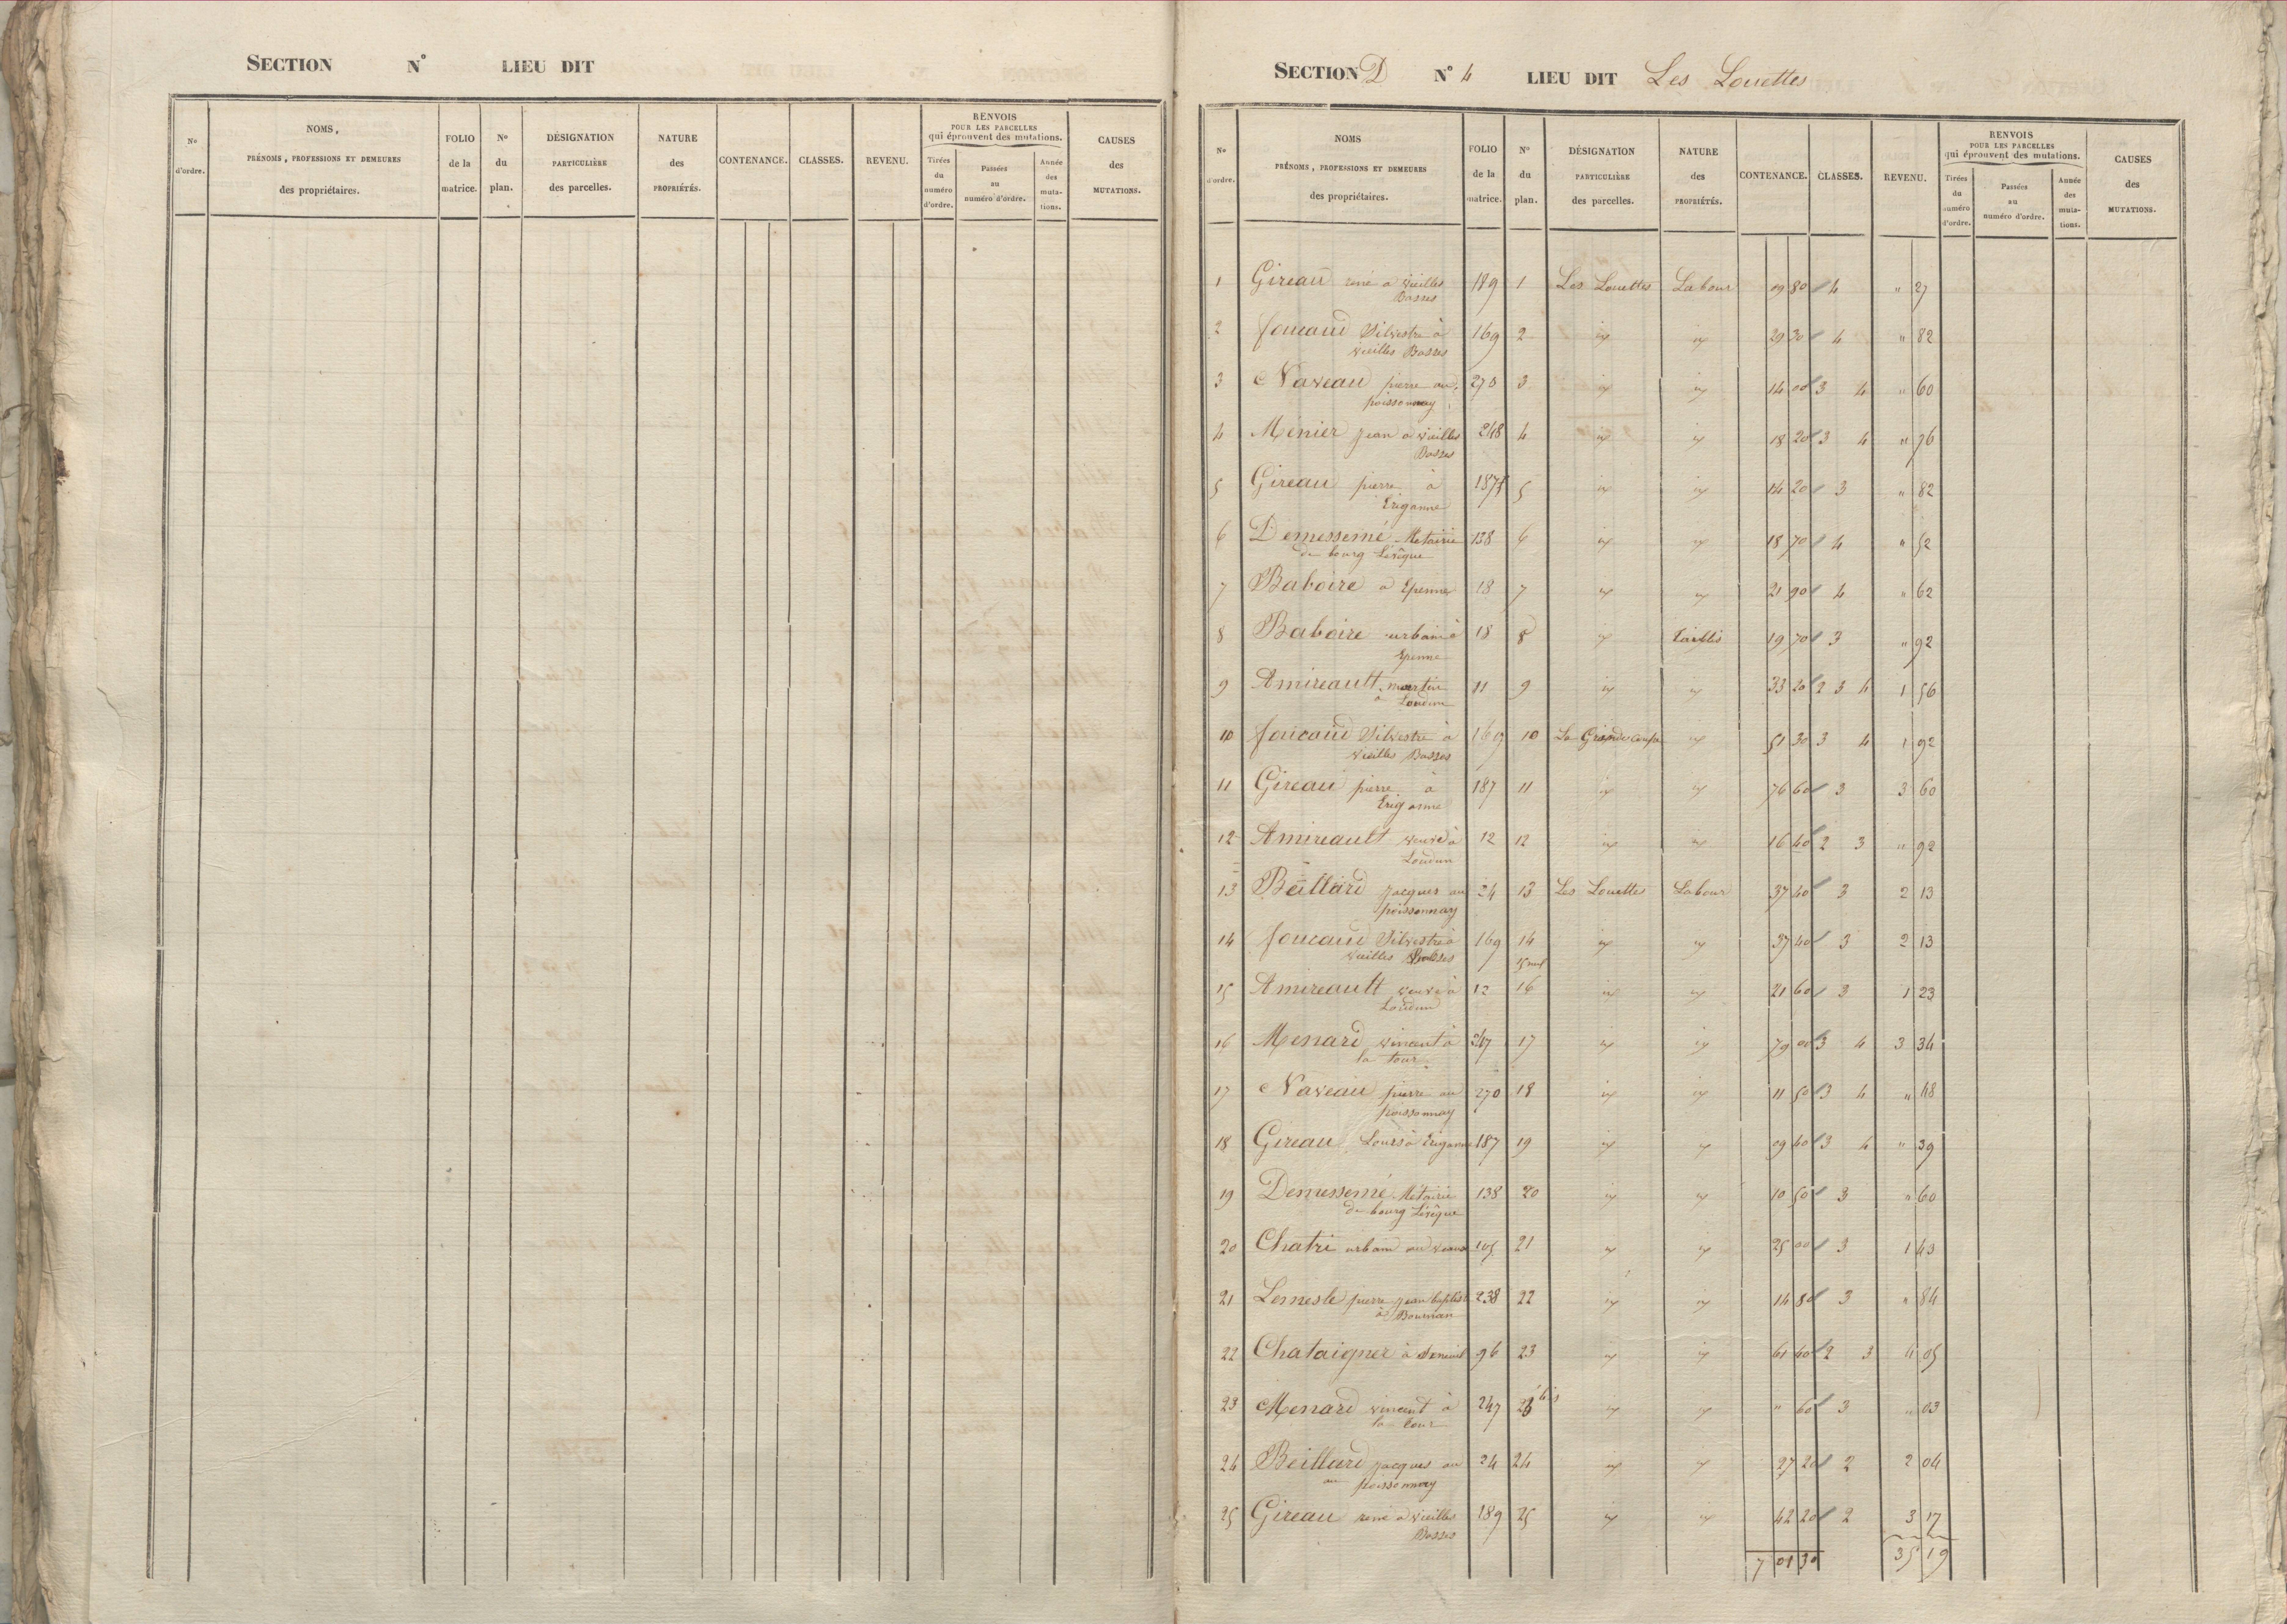 SECTION N° LIEU DIT
N° d'ordre. NOMS, PRÉNOMS, PROFESSIONS ET DEMEURES des propriétaires. FOLIO de la matrice. N° du plan. DÉSIGNATION PARTICULIÈRE des parcelles. NATURE des PROPRIÉTÉS. CONTENANCE. CLASSES. REVENU. RENVOIS POUR LES PARCELLES qui éprouvent des mutations. Tirées du numéro d'ordre. Passées au numéro d'ordre. Année des mutations. CAUSES des MUTATIONS.
SECTION D N° 4 LIEU DIT Les Louettes
N° d'ordre. NOMS PRÉNOMS, PROFESSIONS ET DEMEURES des propriétaires. FOLIO de la matrice. N° du plan. DÉSIGNATION PARTICULIÈRE des parcelles. NATURE des PROPRIÉTÉS. CONTENANCE. CLASSES. REVENU. RENVOIS POUR LES PARCELLES qui éprouvent des mutations. Tirées du numéro d'ordre. Passées au numéro d'ordre. Année des mutations. CAUSES des MUTATIONS.
1 Gireau rené a vieilles 189 1 Les Louettes Labour 09 80 4 " 27
Basses
2 foucaud Silvestre à 169 2 29 30 4 " 82
vieilles Basses
3 Naveau pierre au 270 3 14 00 3 4 " 60
poissonnay
4 Menier jean a vieilles 248 4 18 20 3 4 " 76
Basses
5 Gireau pierre à 187 5 14 20 3 " 82
Eriganne
6 Demessemé Metairie 138 6 18 70 4 " 52
de bourg Lévêque
7 Baboire a Epenne 18 7 21 90 4 " 62
8 Baboire urbain à 18 8 taillis 19 70 3 " 92
Epenne
9 Amireault martin 11 9 33 20 2 3 4 1 56
à Loudun
10 foucaud Silvestre à 169 10 La Grande 51 30 3 4 1 92
vieilles Basses
11 Gireau pierre à 187 11 76 60 3 3 60
Eriganne
12 Amireault veuve à 12 12 16 40 2 3 " 92
Loudun
13 Beillard jacques au 24 13 Les Louettes Labour 37 40 3 2 13
poissonnay
14 foucaud Silvestre à 169 14 37 40 3 2 13
vieilles Basses 15 nul
15 Amireault veuve à 12 16 21 60 3 1 23
Loudun
16 Menard vincent à 247 17 79 00 3 4 3 34
la tour
17 Naveau pierre au 270 18 11 50 3 4 " 48
poissonnay
18 Gireau Louis à Eriganne 187 19 09 40 3 4 " 39
19 Demessemé Métairie 138 20 10 50 3 " 60
de bourg Lévêque
20 Chatri urbain au 105 21 25 00 3 1 43
21 Lemesle pierre jean baptiste 238 22 14 80 3 " 84
à Bournan
22 Chataigner à 96 23 61 40 2 3 4 05
23 Menard vincent à 247 23 bis " 60 3 " 03
la tour
24 Beillard jacques au 24 24 27 20 2 2 04
au poissonnay
25 Gireau rené a vieilles 189 25 42 20 2 3 17
Basses
7 01 30 35 19